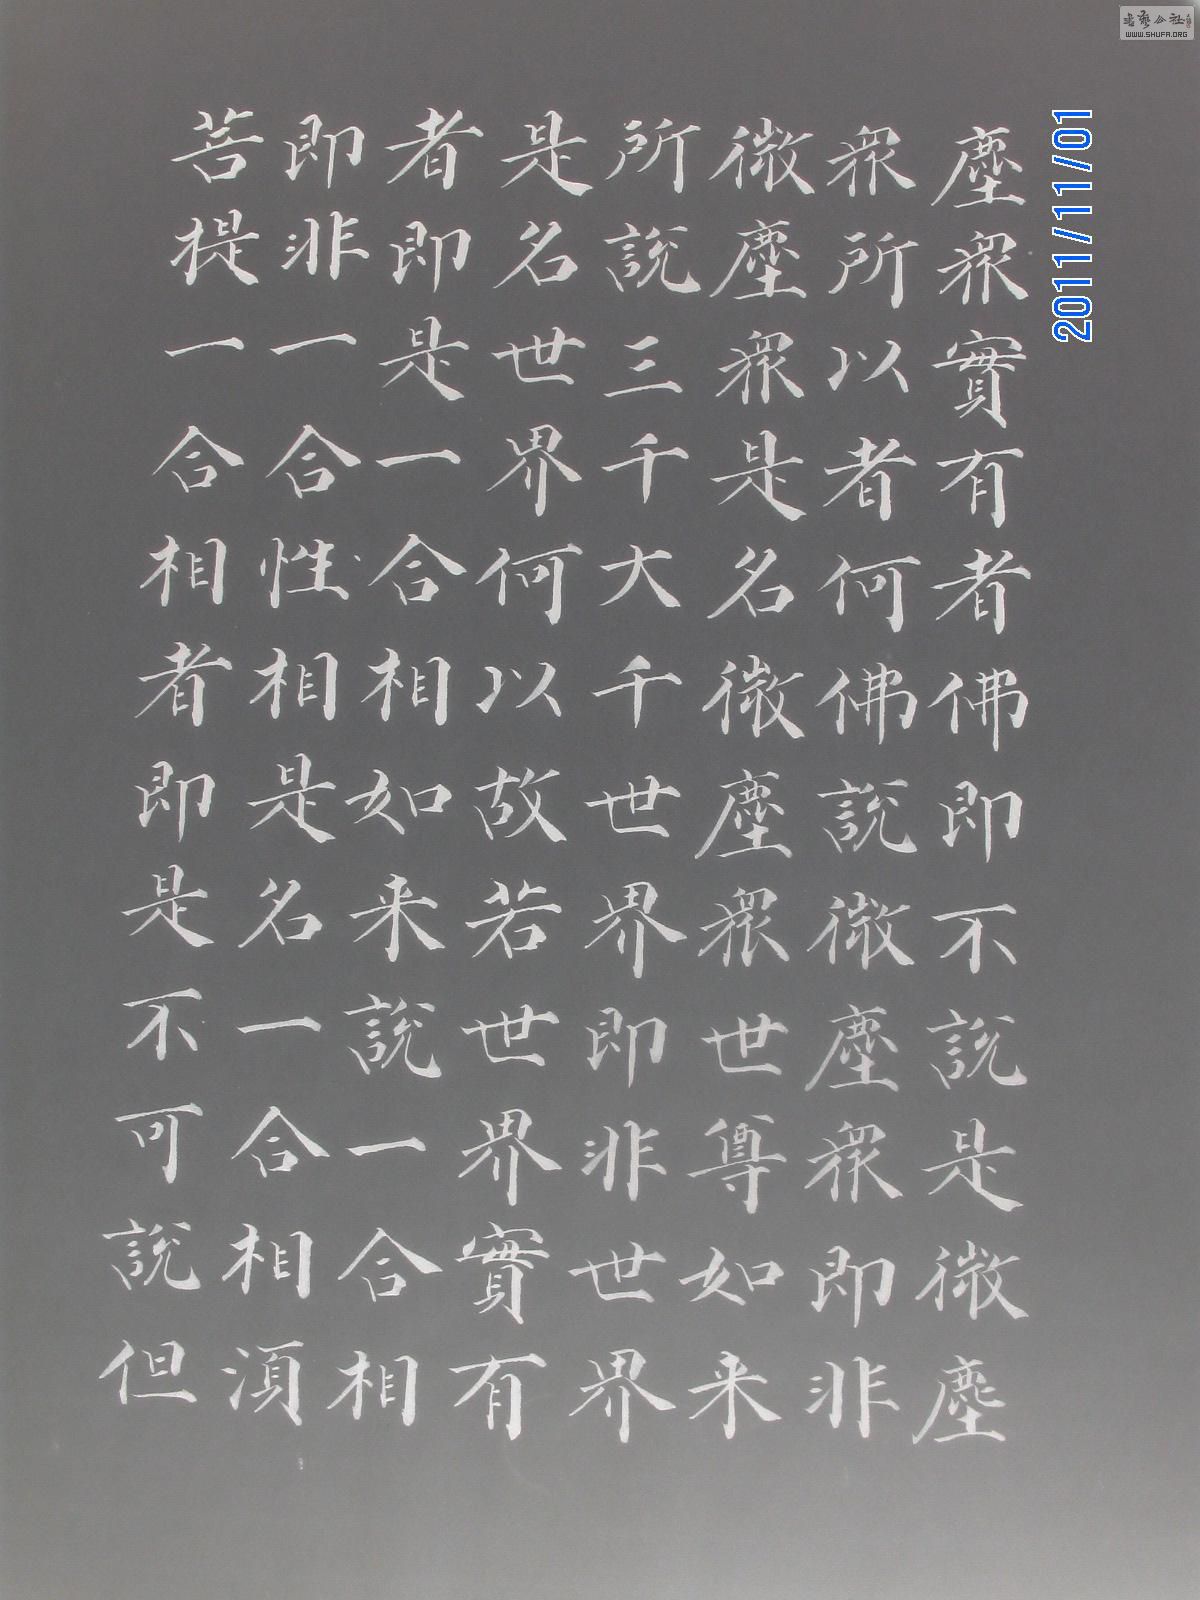 塵眾實有者佛即不說是微塵
眾所以者何佛說微塵眾即非
微塵眾是名微塵眾世尊如来
所說三千大千世界即非世界
是名世界何以故若世界實有
者即是一合相如来說一合相
即非一合性相是名一合相湏
菩提一合相者即是不可說但
2011/11/01
书艺公社
WWW.SHUFA.ORG